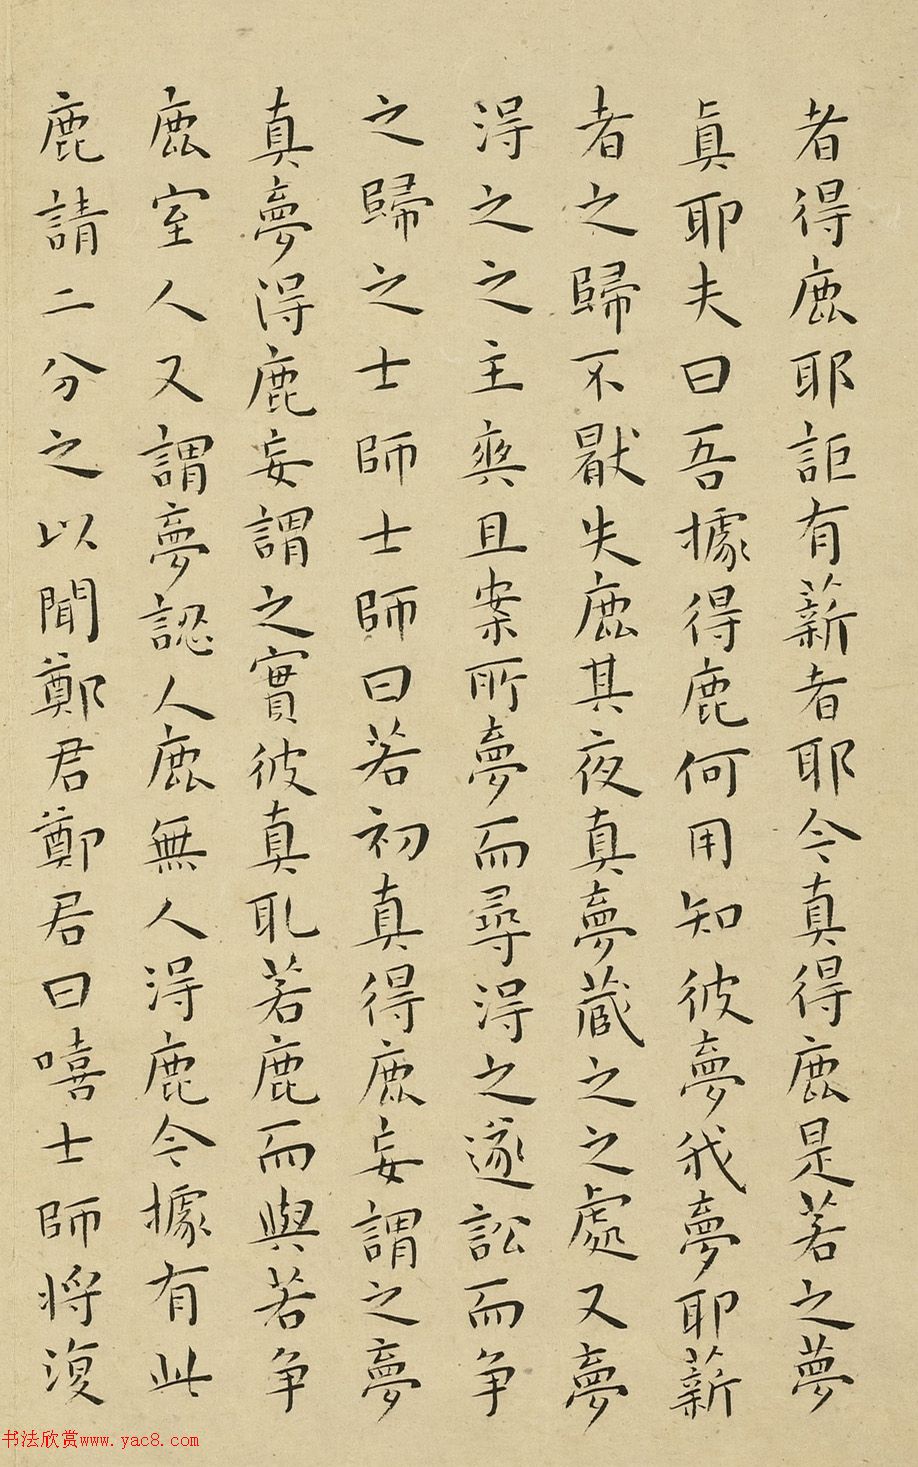 者得鹿耶詎有薪者耶今真得鹿是若之夢
真耶夫曰吾據得鹿何用知彼夢我夢耶薪
者之歸不厭失鹿其夜真夢藏之之處又夢
得之之主爽且案所夢而尋得之遂訟而争
之歸之士師士師曰若初真得鹿妄謂之夢
真夢得鹿妄謂之實彼真取若鹿而與若争
鹿室人又謂夢認人鹿無人得鹿今據有此
鹿請二分之以聞鄭君鄭君曰嘻士師将復
书法欣赏www.yac8.com